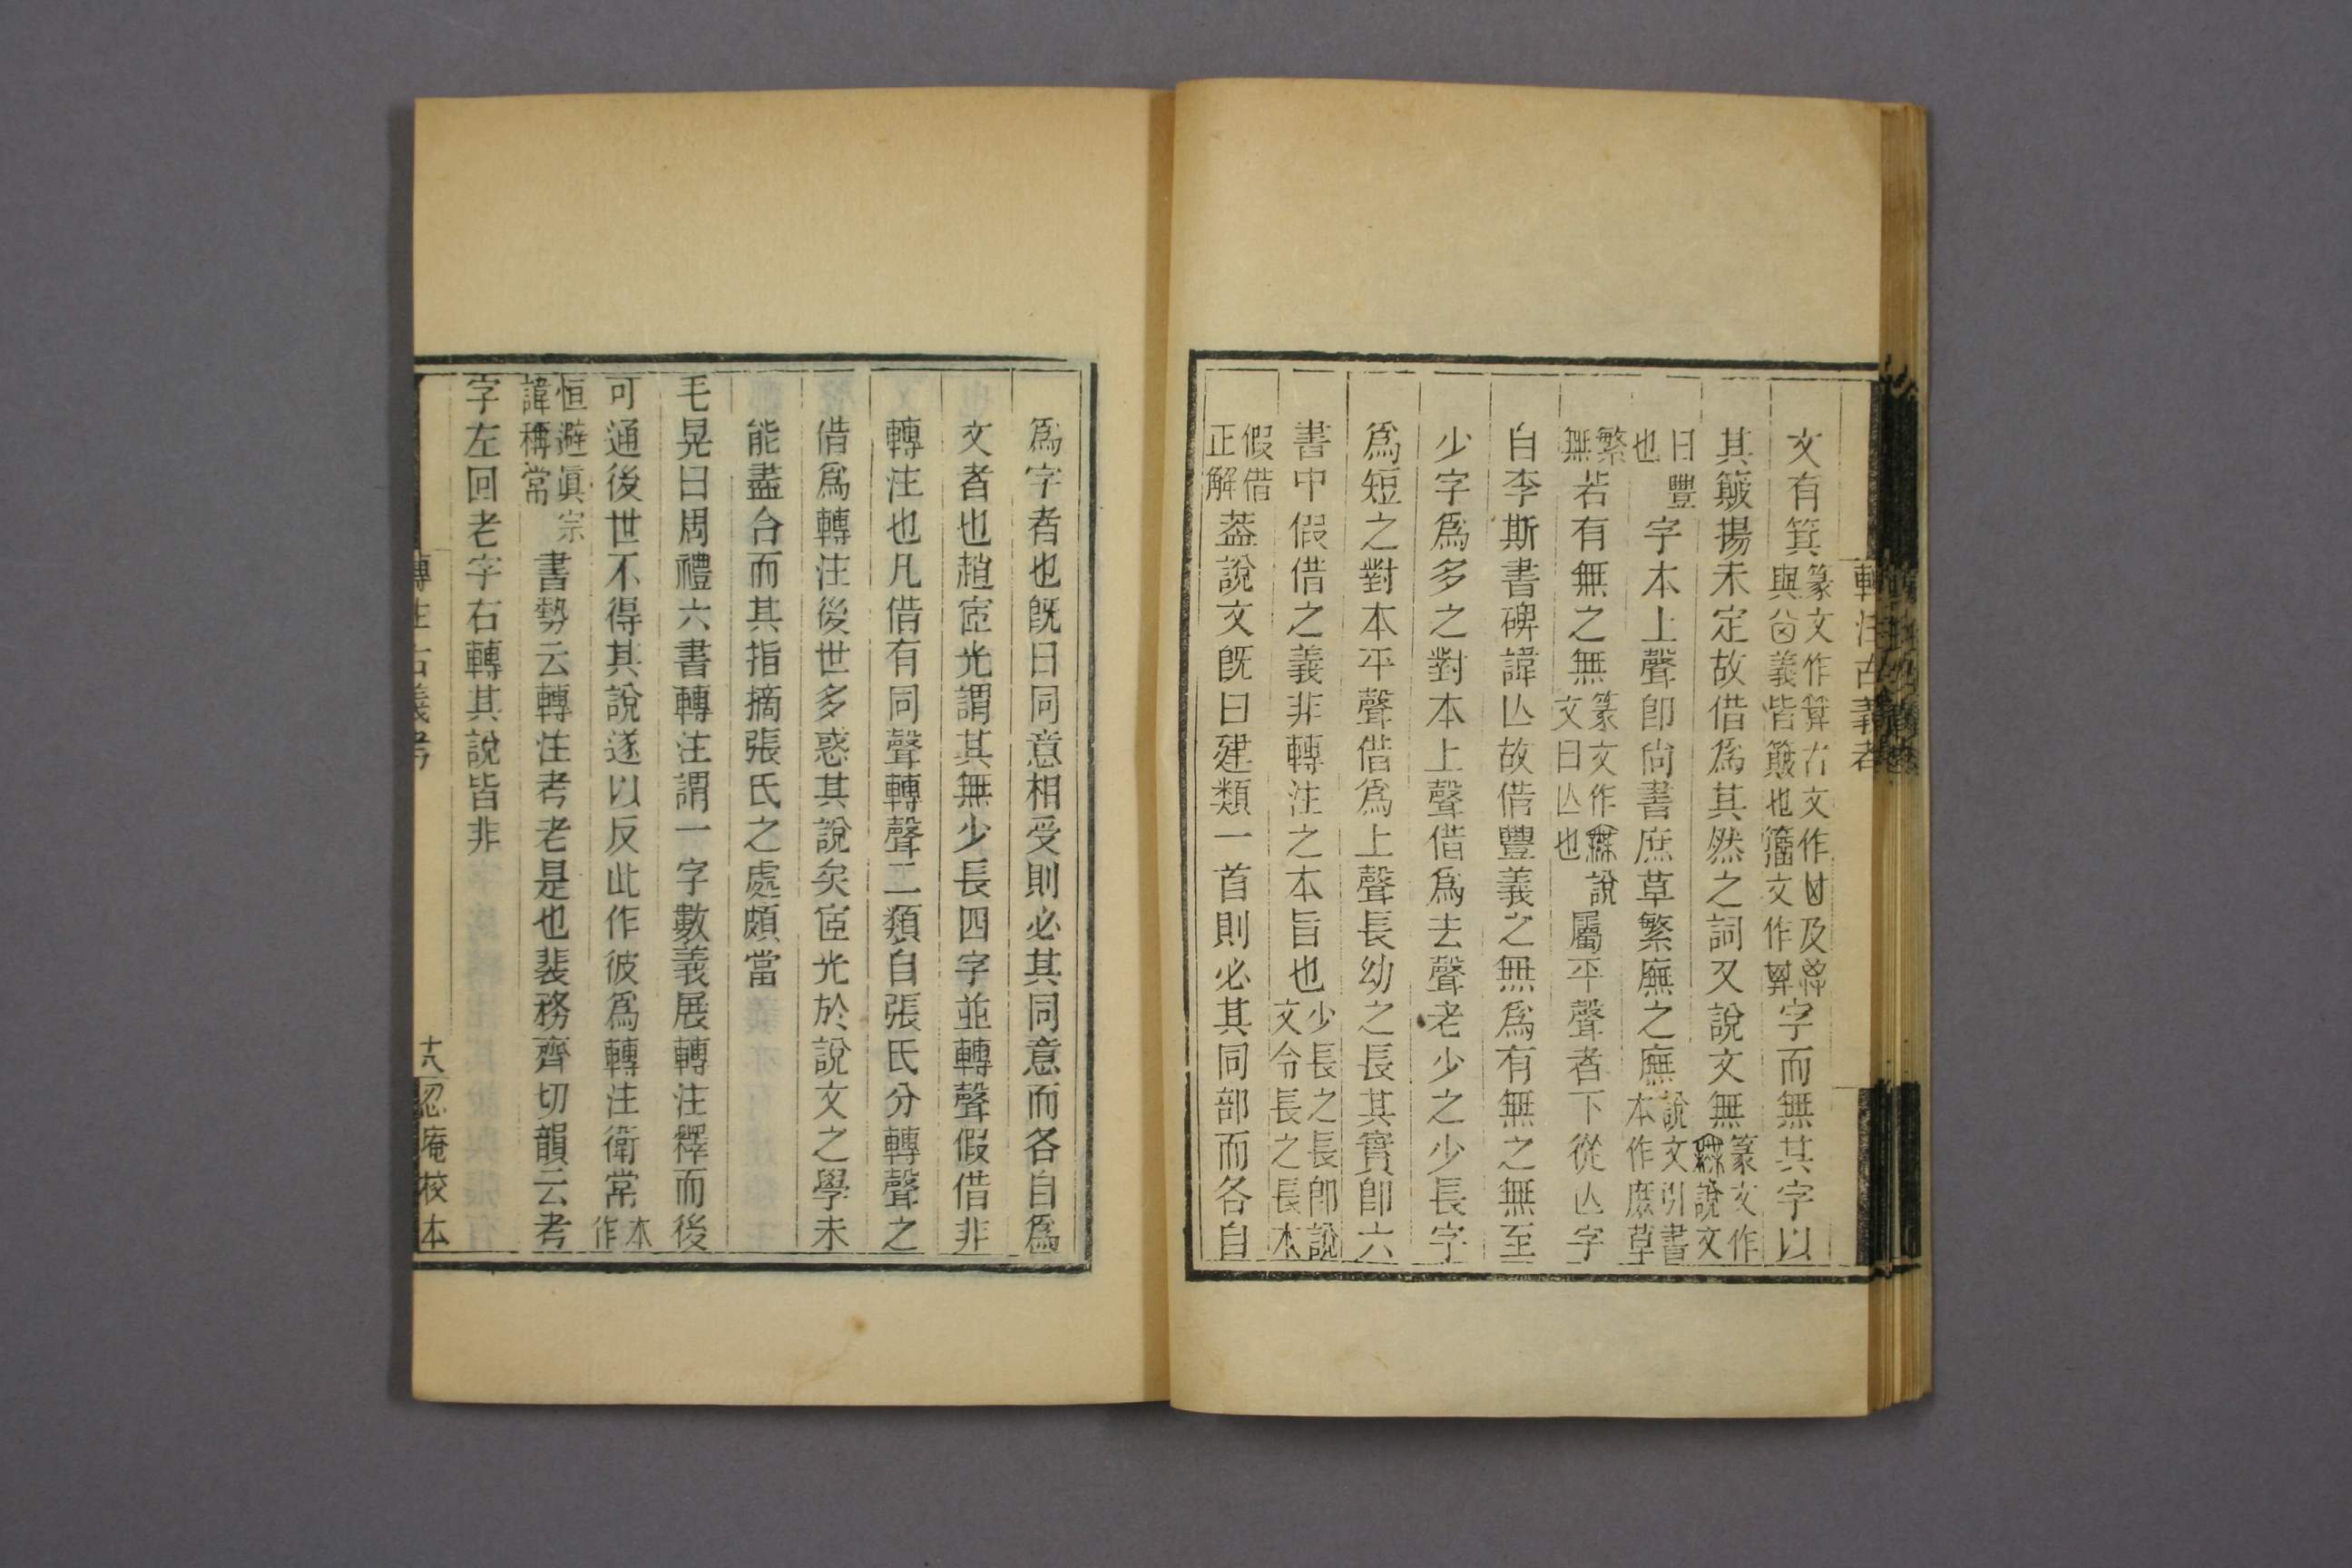 轉注古義考
文有箕篆文作𥫶古文作𠀠及
與⿱八囟義皆簸也籒文作𠔛字而無其字以
其簸揚未定故借爲其然之詞又說文無篆文作
說文
曰豐
也字本上聲卽尙書庶草繁廡之廡說文引書
本作庶草
繁
無若有無之無篆文作說
文曰亾也屬平聲者下從亾字
自李斯書碑諱亾故借豐義之無爲有無之無至
少字爲多之對本上聲借爲去聲老少之少長字
爲短之對本平聲借爲上聲長幼之長其實卽六
書中假借之義非轉注之本旨也少長之長卽說
文令長之長本
假借
正解葢說文旣曰建類一首則必其同部而各自
爲字者也旣曰同意相受則必其同意而各自爲
文者也趙宧光謂其無少長四字並轉聲假借非
轉注也凡借有同聲轉聲二類自張氏分轉聲之
借爲轉注後世多惑其說矣宧光於說文之學未
能盡合而其指摘張氏之處頗當
毛晃曰周禮六書轉注謂一字數義展轉注釋而後
可通後世不得其說遂以反此作彼爲轉注衛常本
作
恒避眞宗
諱稱常書勢云轉注考老是也裴務齊切韻云考
字左回老字右轉其說皆非
轉注古義考
十八
忍庵校本